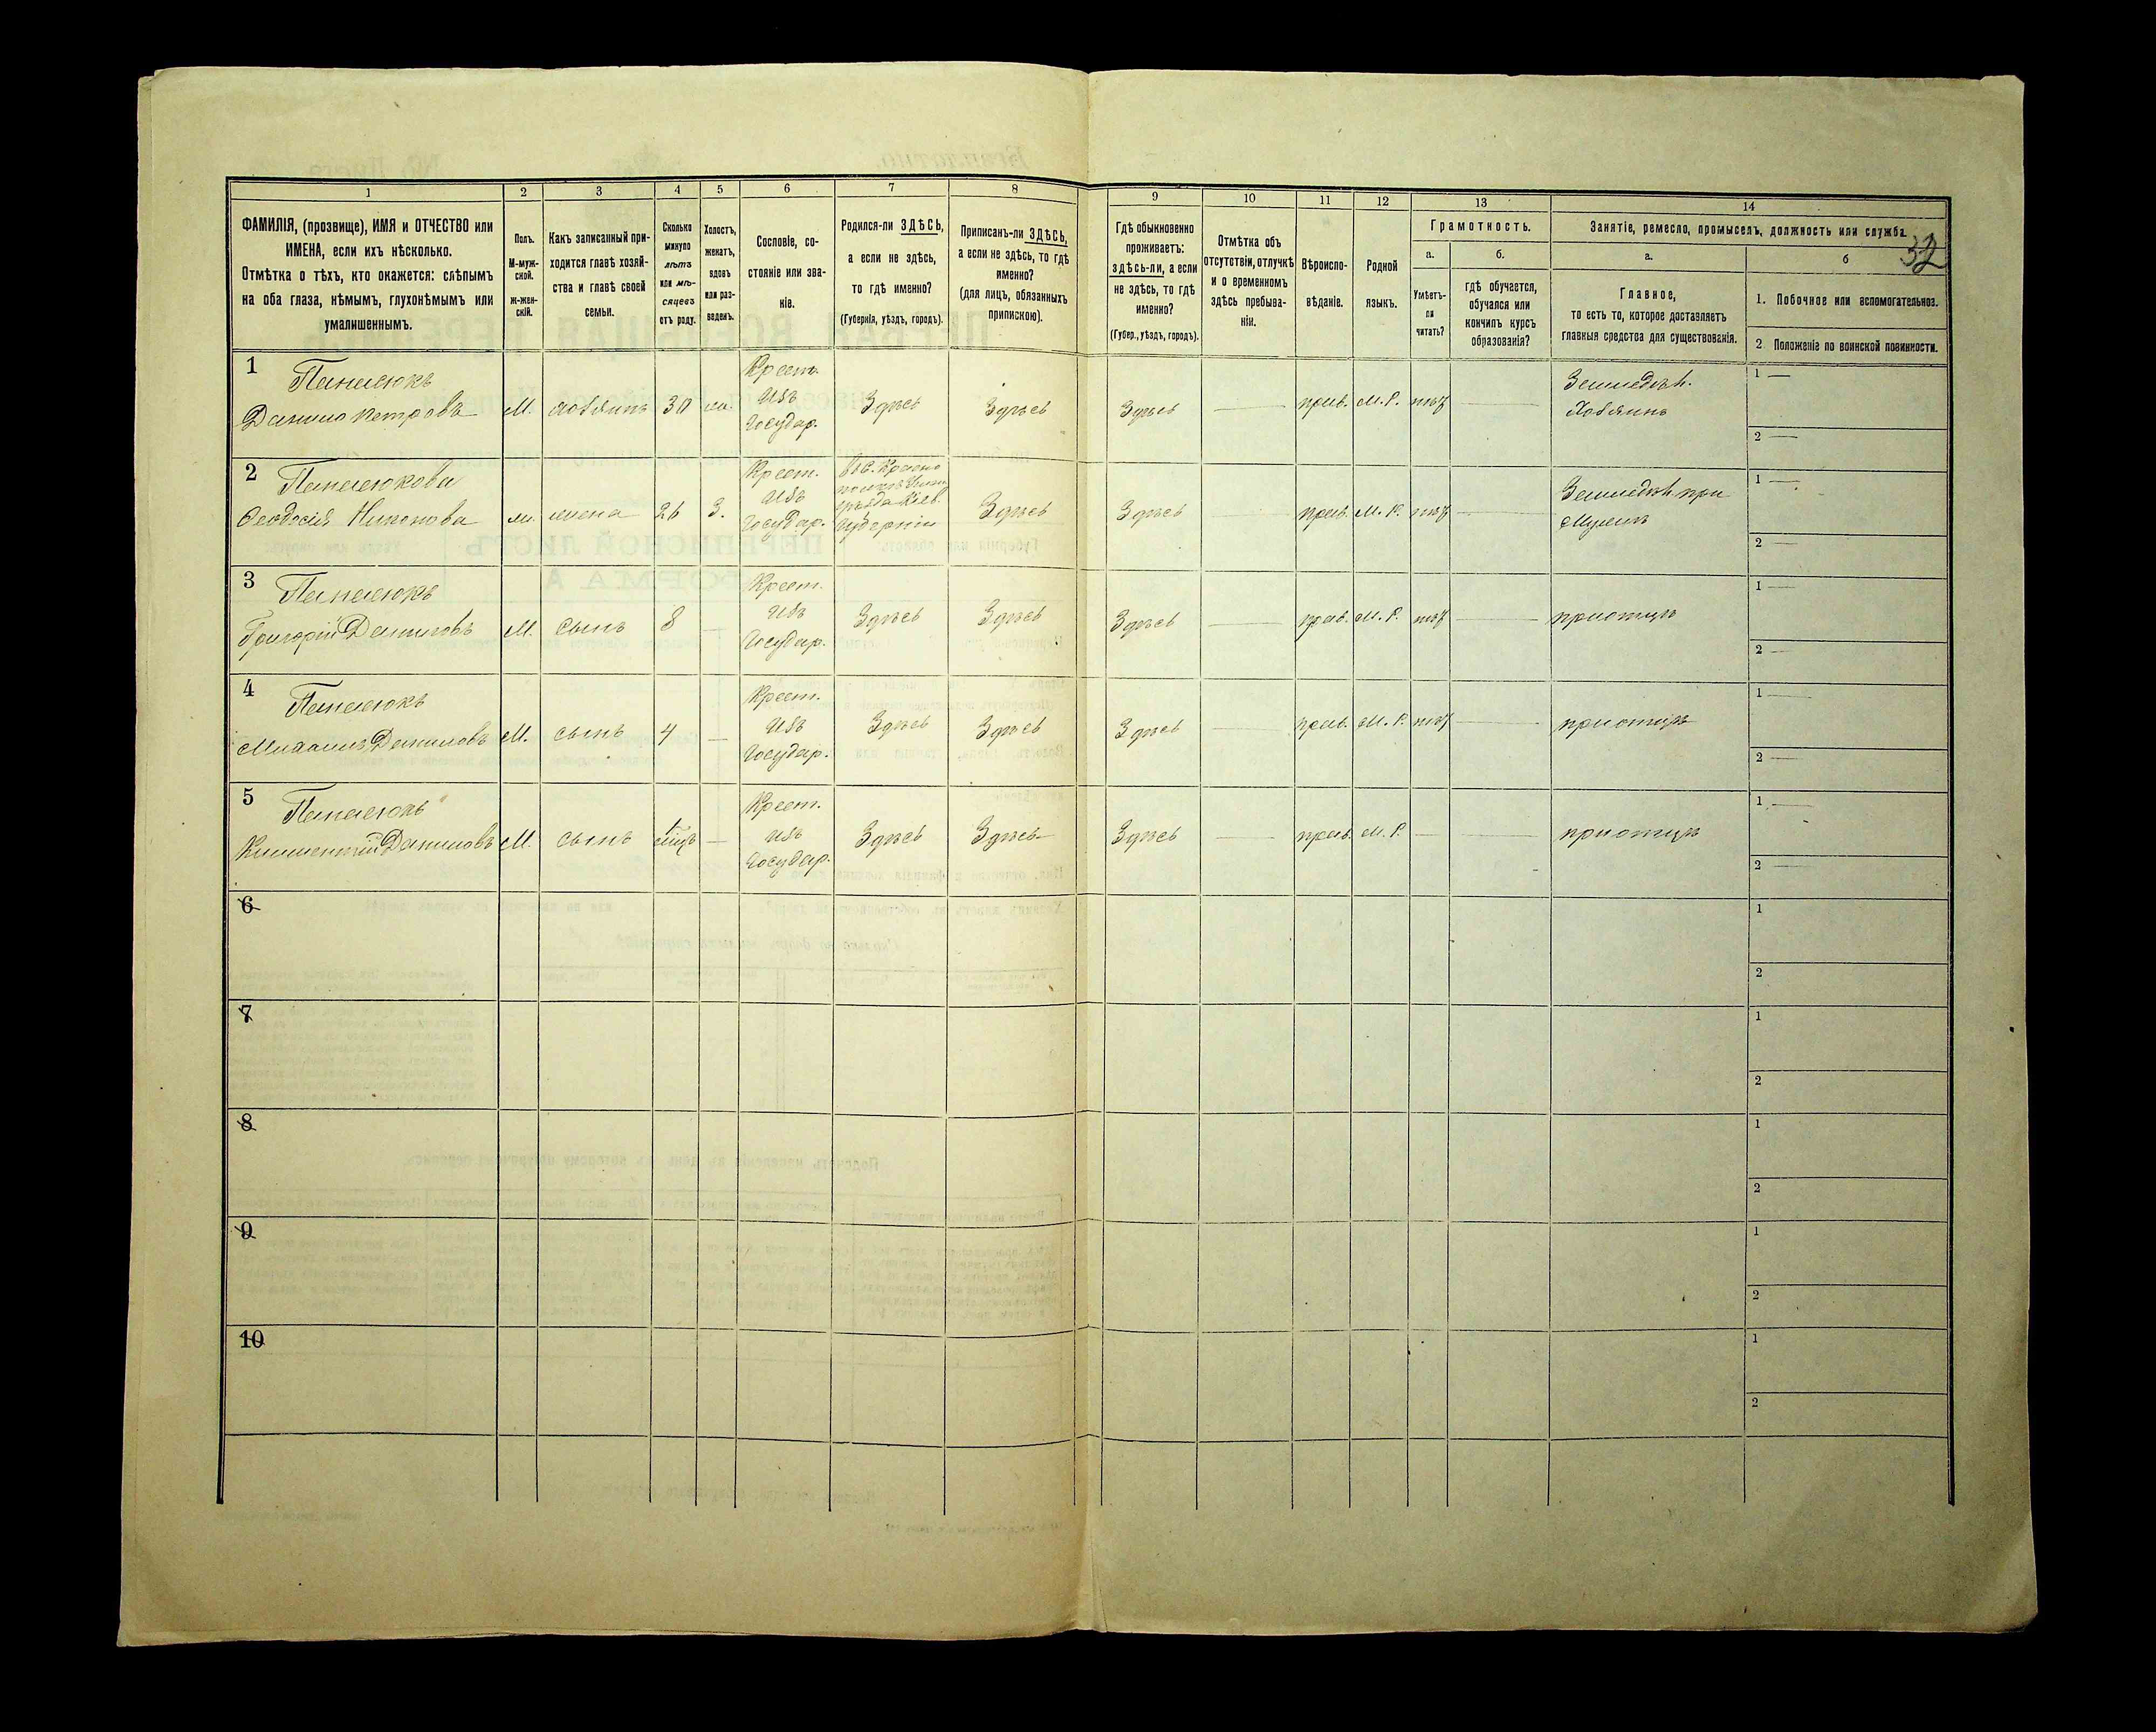 32
1 2 3 4 5 6 7 8 9 10 11 12 13 14
ФАМИЛІЯ, (прозвище), ИМЯ и ОТЧЕСТВО или
ИМЕНА, если ихъ нѣсколько.
Отмѣтка о тѣхъ, кто окажется: слѣпымъ
на оба глаза, нѣмымъ, глухонѣмымъ или
умалишеннымъ.
Полъ.
М-муж-
ской.
ж-жен-
скій.
Какъ записанный при-
ходится главѣ хозяй-
ства и главѣ своей
семьи.
Сколько
минуло
лѣтъ
или мѣ-
сяцевъ
отъ роду.
Холостъ,
женатъ,
вдовъ
или раз-
веденъ.
Сословіе, со-
стояніе или зва-
ніе.
Родился-ли ЗДѢСЬ,
а если не здѣсь,
то гдѣ именно?
(Губернія, уѣздъ, городъ).
Приписанъ-ли ЗДѢСЬ,
а если не здѣсь, то гдѣ
именно?
(для лицъ, обязанныхъ
припискою).
Гдѣ обыкновенно
проживаетъ:
здѣсь-ли, а если
не здѣсь, то гдѣ
именно?
(Губер., уѣздъ, городъ).
Отмѣтка объ
отсутствіи, отлучкѣ
и о временномъ
здѣсь пребыва-
ніи.
Вѣроиспо-
вѣданіе.
Родной
языкъ.
Грамотность.
а.
Умѣетъ-
ли
читать?
б.
гдѣ обучается,
обучался или
кончилъ курсъ
образованія?
Занятіе, ремесло, промыселъ, должность или служба.
а.
Главное,
то есть то, которое доставляетъ
главныя средства для существованія.
б
1. Побочное или вспомогательное.
2. Положеніе по воинской повинности.
1
Панасюкъ
Данило Петровъ
М.
хозяинъ
30
Крест.
изъ
Государ.
Здѣсь
Здѣсь
Здѣсь
прав.
М. Р.
Земледѣл.
Хозяинъ
1 —
2 —
2
Панасюкова
Феодосія Никонова
ж.
жена
26
З.
Крест.
изъ
Государ.
уѣзда Кіев.
Губерніи
Здѣсь
Здѣсь
прав.
М. Р.
Земледѣл. при
Мужѣ
1 —
2 —
3
Панасюкъ
Григорій Даниловъ
М.
Сынъ
8
—
Крест.
изъ
Государ.
Здѣсь
Здѣсь
Здѣсь
прав.
М. Р.
при отцѣ
1 —
2 —
4
Панасюкъ
Михаилъ Даниловъ
М.
сынъ
4
—
Крест.
изъ
Государ.
Здѣсь
Здѣсь
Здѣсь
прав.
М. Р.
при отцѣ
1 —
2 —
5
Панасюкъ
Климентій Даниловъ
М.
сынъ
—
Крест.
изъ
Государ.
Здѣсь
Здѣсь
Здѣсь
прав.
М. Р.
—
при отцѣ
1 —
2 —
6
1
2
7
1
2
8
1
2
9
1
2
10
1
2